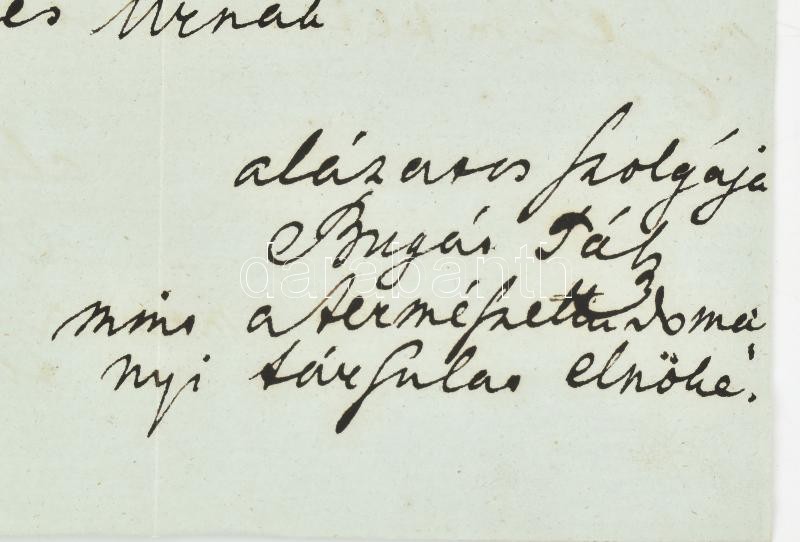 és Urnak
alázatos szolgája
Bugát Pál
mint a természettudomá
nyi társulat elnöke.
darabanth